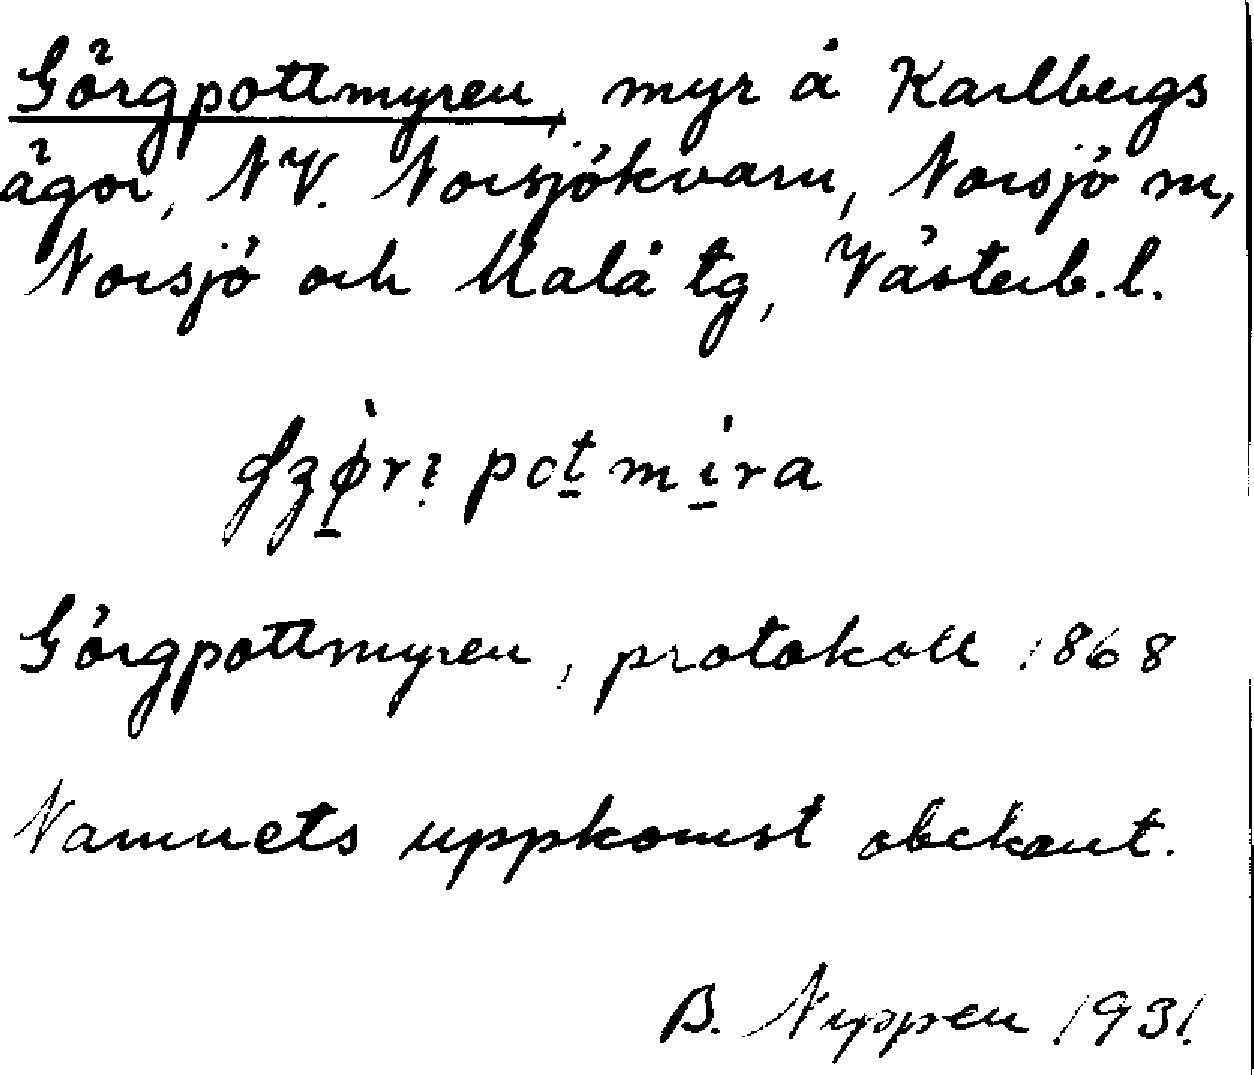 Görgpottmyren, myr å Karlbergs
ägor, NV. Norsjökvarn, Norsjö sn,
Norsjö och Malå tg, Västerb. l.
Görgpottmyren, protokoll 1868
Namnets uppkomst obekant.
B. Nyppen 1931.